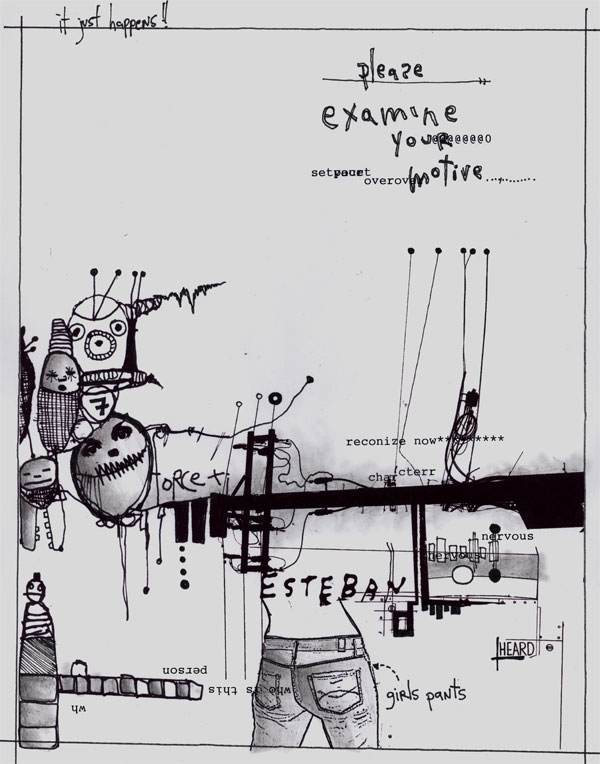 it just happens!!
please
examine
your @@@@@@O
motive............
overover
reconize now*********
chor cterr
force+
nervous
nervous
ESTEBAN
HEARD
person
who is this
wh
girls pants
7